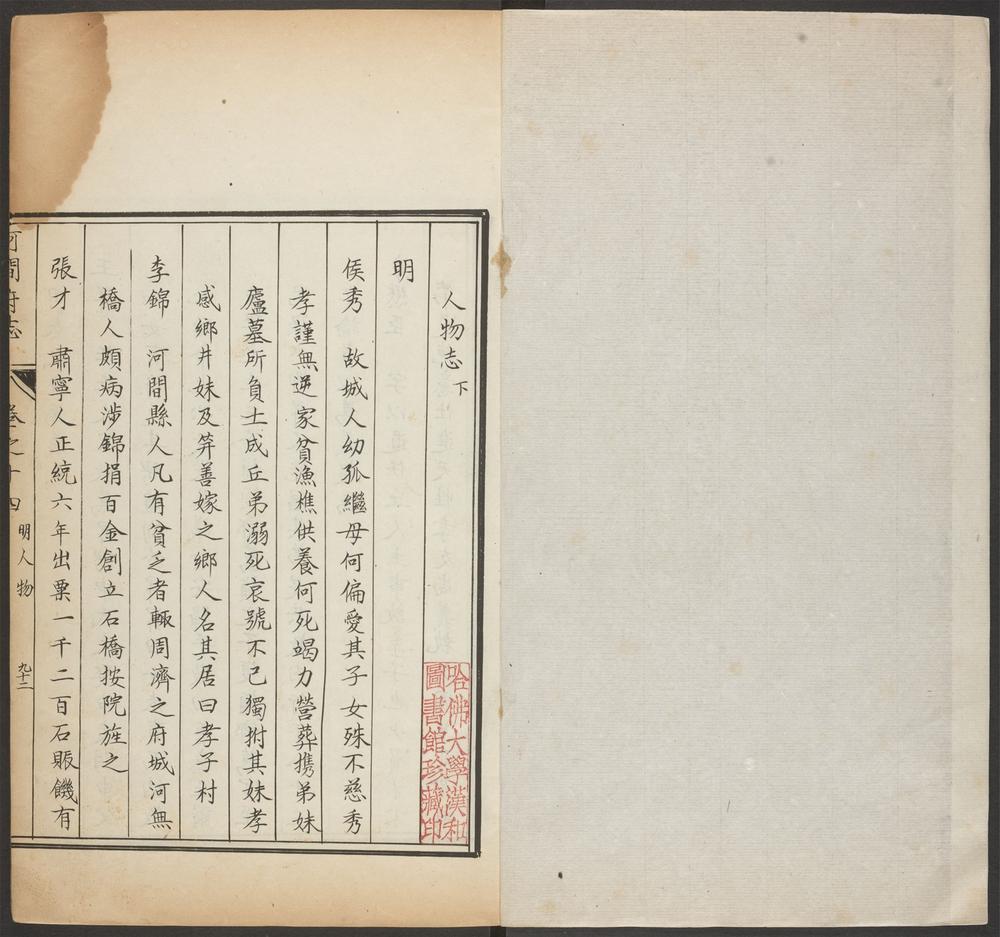 人物志下
明
侯秀　故城人幼孤繼母何偏愛其子女殊不慈秀
孝謹無逆家貧漁樵供養何死竭力營葬携弟妹
廬墓所負土成丘弟溺死哀號不已獨拊其妹孝
感鄉井妹及笄善嫁之鄉人名其居曰孝子村
李錦　河間縣人凡有貧乏者輒周濟之府城河無
橋人頗病涉錦捐百金創立石橋按院旌之
張才　肅寧人正統六年出粟一千二百石賑饑有
河間府志　卷之十四　明人物　九十二
哈佛大學漢和
圖書館珍藏印